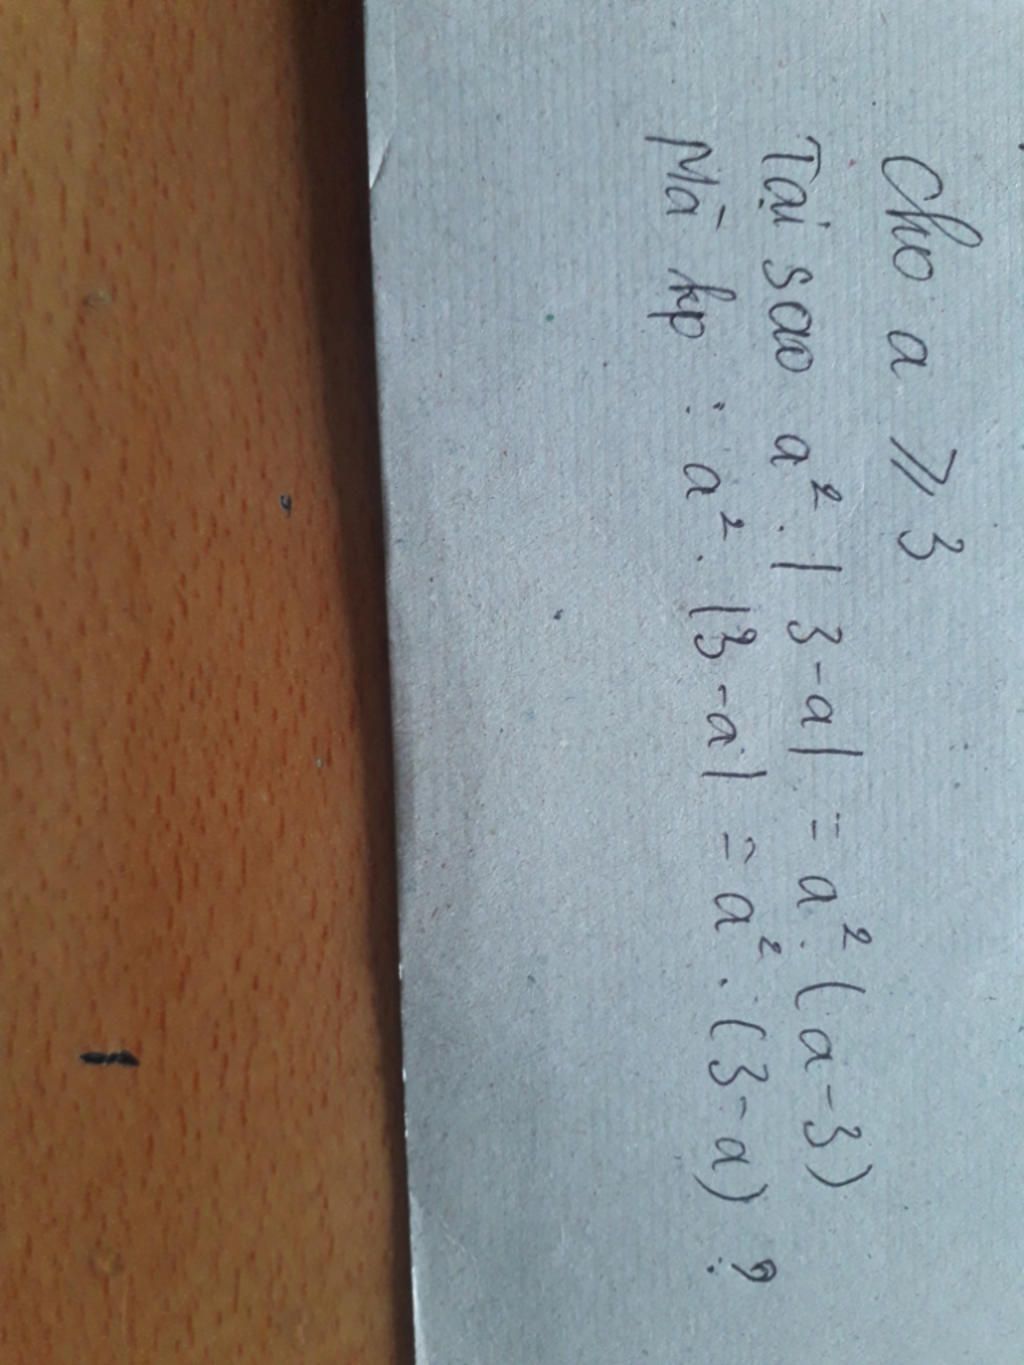 Cho a ⩾ 3
Tại sao a². |3-a| = a².(a-3)
Mà kp : a². |3-a| = a².(3-a) ?